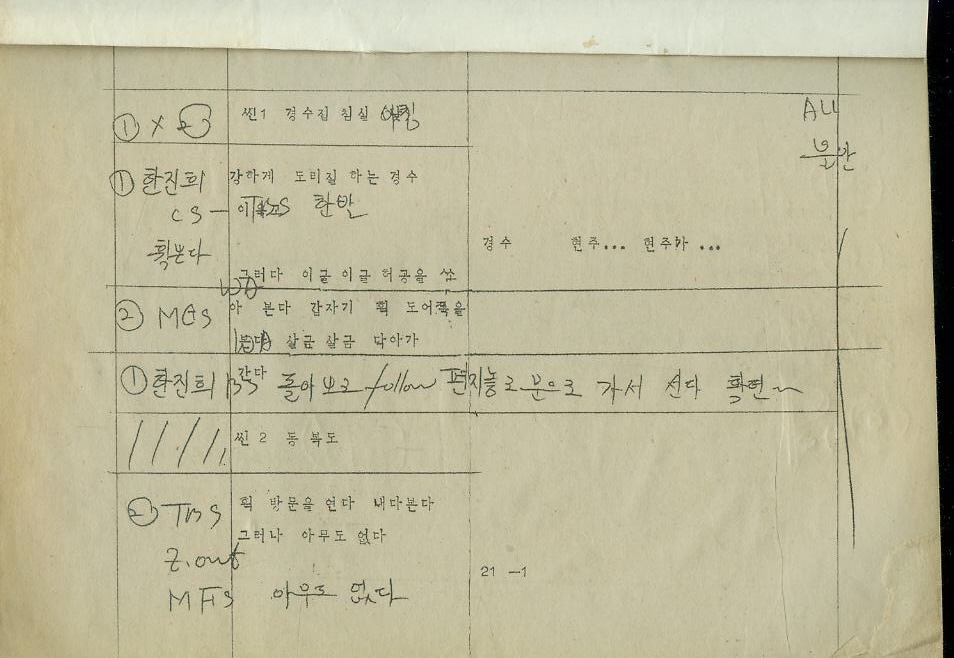 ① × ②
씬1 경수집 침실 아침
ALL
불안
① 한진희
강하게 도리질 하는 경수
CS — 한발
획 본다
경수 현주... 현주야 ...
그러다 이글 이글 허공을 쏘
② MCS
아 본다 갑자기 획 도어쪽을
살금 살금 다가가
① 한진희 BS 돌아보고 follow 편지놓고 문으로 가서 선다 확연~
씬 2 동 복도
② TBS
획 방문을 연다 내다본다
그러나 아무도 없다
Z.out
21 -1
MFS 아무도 없다